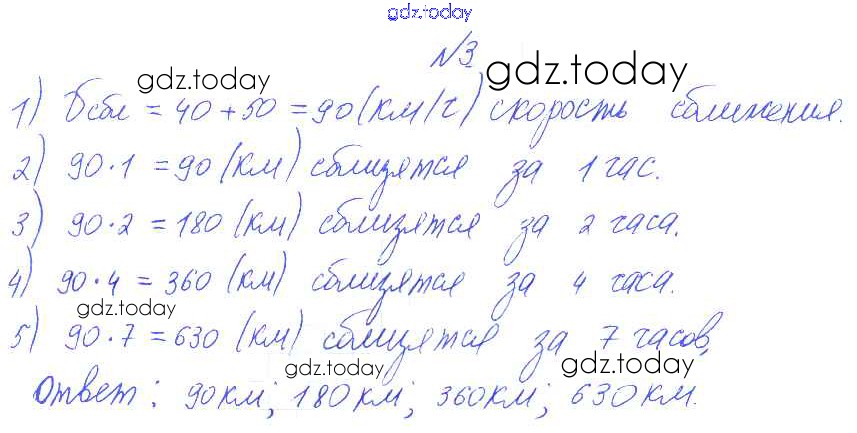 gdz.today
№3 gdz.today
gdz.today
1) υсбл = 40 + 50 = 90 (км/ч) скорость сближения.
2) 90 · 1 = 90 (км) сблизятся за 1 час.
3) 90 · 2 = 180 (км) сблизятся за 2 часа.
4) 90 · 4 = 360 (км) сблизятся за 4 часа.
gdz.today
5) 90 · 7 = 630 (км) сблизятся за 7 часов,
gdz.today gdz.today
Ответ: 90 км; 180 км; 360 км; 630 км.